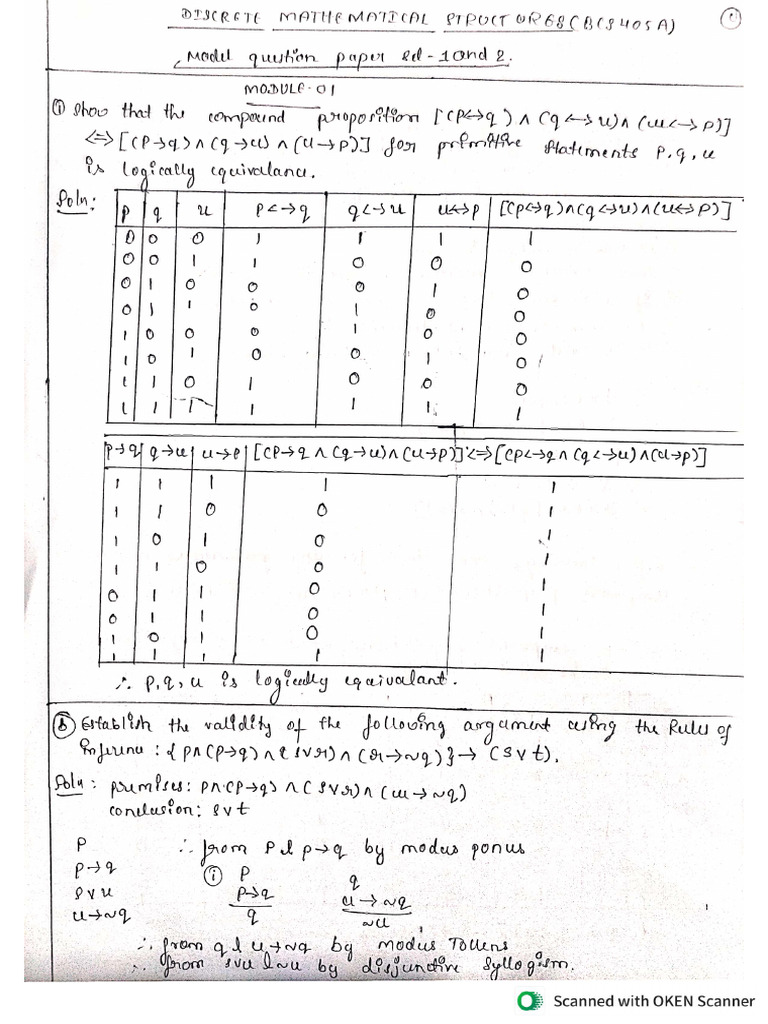 DISCRETE MATHEMATICAL STRUCTURES (BCS405A) ①
Model question paper sd-1 and 2.
MODULE-01
① Show that the compound proposition [(p↔q) ∧ (q↔u) ∧ (u↔p)]
⇔ [(p→q) ∧ (q→u) ∧ (u→p)] for primitive statements p, q, u
is logically equivalance.
Soln:
p q u p↔q q↔u u↔p [(p↔q)∧(q↔u)∧(u↔p)]
0 0 0 1 1 1 1
0 0 1 1 0 0 0
0 1 0 0 0 1 0
0 1 1 0 1 0 0
1 0 0 0 1 0 0
1 0 1 0 0 1 0
1 1 0 1 0 0 0
1 1 1 1 1 1 1
p→q q→u u→p [(p→q ∧ (q→u)∧(u→p)] ⇔ [(p↔q ∧ (q↔u)∧(u→p)]
1 1 1 1 1
1 1 0 0 1
1 0 1 0 1
1 1 0 0 1
0 1 1 0 1
0 1 1 0 1
1 0 1 0 1
1 1 1 1 1
∴ p, q, u is logically equivalant.
ⓑ Establish the validity of the following argument using the Rules of
inference : { p∧(p→q) ∧ (s∨r) ∧ (r→~q) } → (s∨t).
Soln : premises: p∧(p→q) ∧ (s∨r) ∧ (u→~q)
conclusion: s∨t
p ∴ from p & p→q by modus ponus
p→q ① p q
s∨u p→q u→~q
u→~q q ~u
∴ from q & u→~q by modus Tollens
∴ from s∨u & ~u by disjunctive syllogism.
Scanned with OKEN Scanner